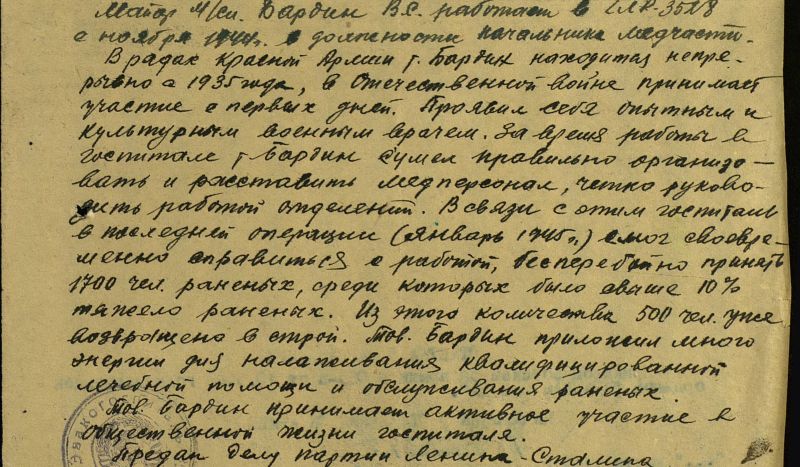 Майор м/сл. Бардин В.С. работает в ГЛР-3528
с ноября 1944г. в должности начальника медчасти.
В рядах Красной Армии т. Бардин находится непре-
рывно с 1935 года, в Отечественной войне принимает
участие с первых дней. Проявил себя опытным и
культурным военным врачем. За время работы в
госпитале т. Бардин сумел правильно организо-
вать и расставить медперсонал, четко руково-
дить работой отделений. В связи с этим госпиталь
в последней операции (январь 1945г.) смог своевре-
менно справиться с работой, бесперебойно принять
1700 чел. раненых, среди которых было свыше 10%
тяжело раненых. Из этого количества 500 чел. уже
возвращено в строй. Тов. Бардин приложил много
энергии для налаживания квалифицированной
лечебной помощи и обслуживания раненых.
Тов. Бардин принимает активное участие в
общественной жизни госпиталя.
Предан делу партии Ленина-Сталина